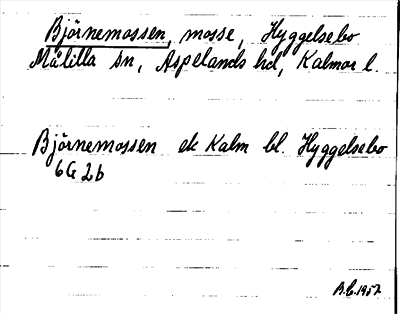 Björnemossen, mosse, Hyggelsebo
Målilla sn, Aspelands hd, Kalmar l.
Björnemossen ek Kalm bl. Hyggelsebo
6G 2b
A.C. 1957.